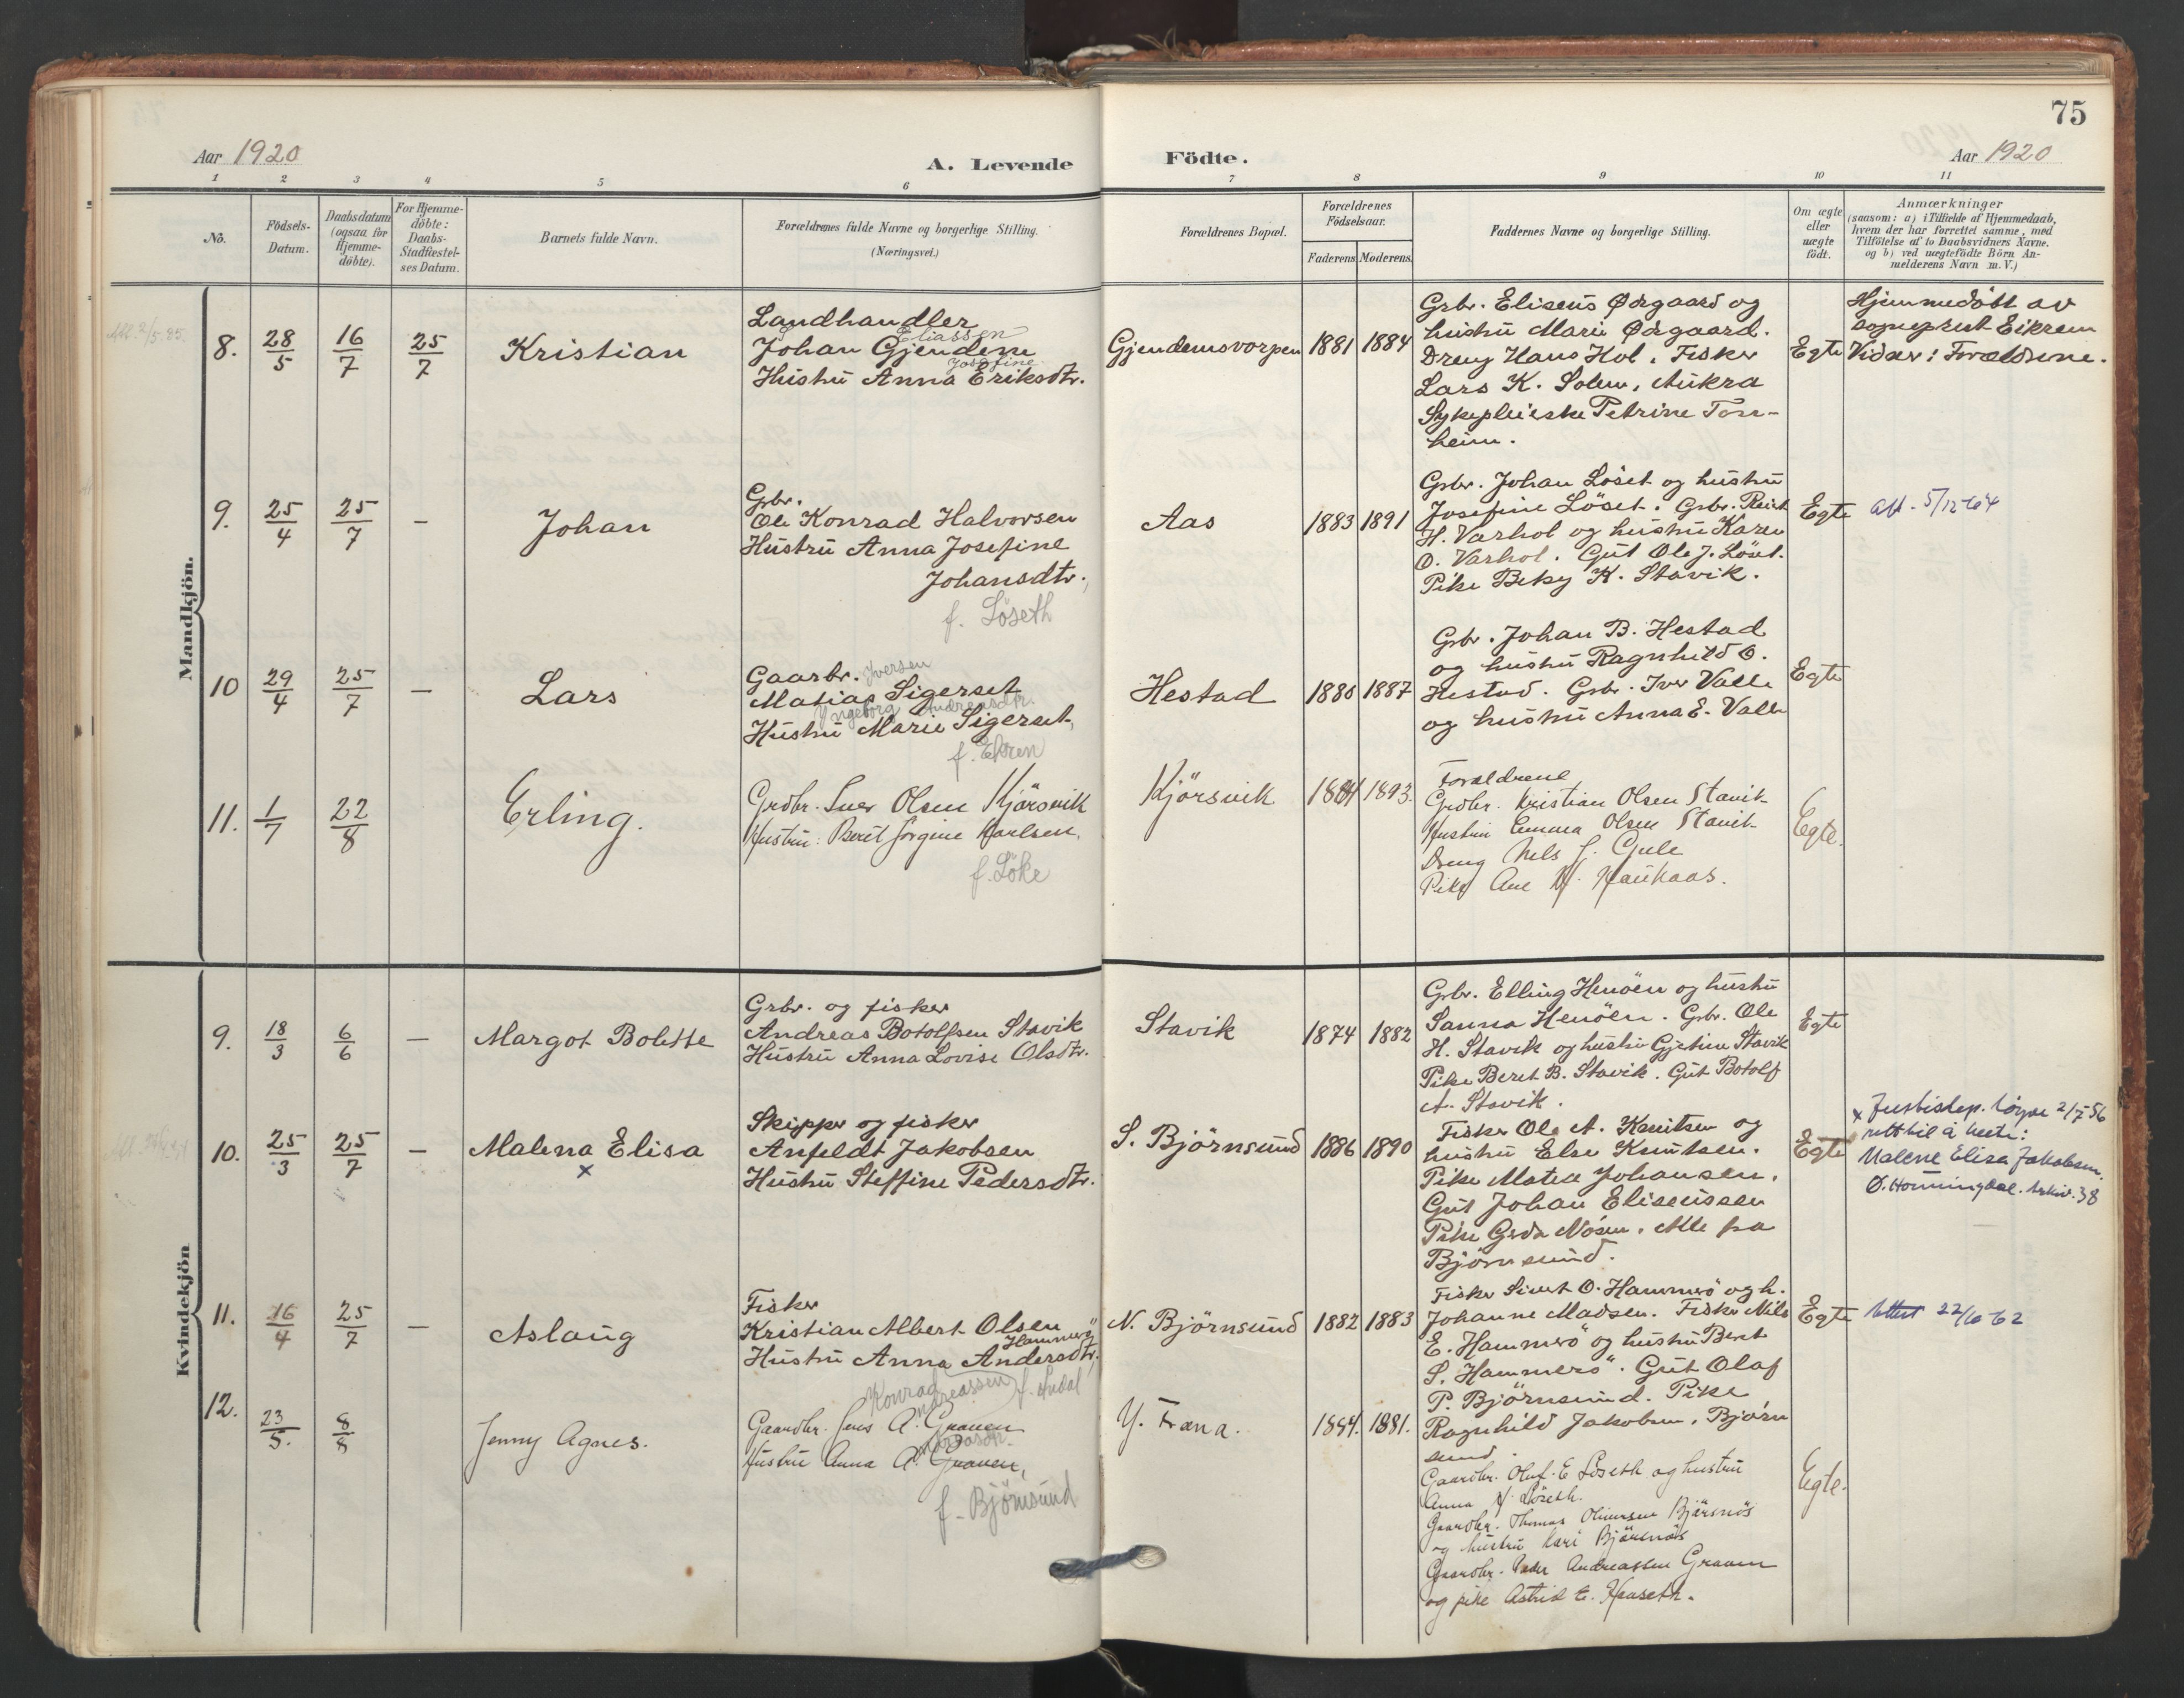 75
Aar 1920
A. Levende
Födte.
Aar 1920
1 2 3 4 5 6 7 8 9 10 11
No.
Födsels-
Datum.
Daabsdatum
(ogsaa for
Hjemme-
döbte).
For Hjemme-
döbte:
Daabs-
Stadfæstel-
ses Datum.
Barnets fulde Navn.
Forældrenes fulde Navne og borgerlige Stilling.
(Næringsvei.)
Forældrenes Bopæl.
Forældrenes
Födselsaar.
Faderens. Moderens.
Faddernes Navne og borgerlige Stilling.
Om ægte
eller
uægte
födt.
Anmærkninger
(saasom: a) i Tilfælde af Hjemmedaab,
hvem der har forrettet samme, med
Tilföielse af to Daabsvidners Navne.
og b) ved uægtefödte Börn An-
melderens Navn m. V.)
Mandkjön.
8. 28/5 16/7 25/7 Kristian
Landhandler
Eliassen
Johan Gjendem
Josefine
Hustru Anna Eriksdtr.
Gjendemsvorpen 1881 1884
Grbr. Eliseus Ørgaard og
hustru Marie Ørgaard.
Dreng Hans Hol. Fisker
Lars K. Solem, Aukra
Sykepleierske Petrine Torn-
heim.
Egte
Hjemmedöbt av
sogneprest Eikrem
Vidner: Forældrene.
9. 25/4 25/7 - Johan
Grbr.
Ole Konrad Halvorsen
Hustru Anna Josefine
Johansdtr.,
f. Löseth
Aas 1883 1891
Grbr. Johan Löset og hustru
Josefine Löset. Grbr.
H. Varhol og hustru Karen
O. Varhol. Gut Ole J. Löset.
Pike Betsy K. Stavik.
Egte
Att. 5/12-64
10 29/4 25/7 - Lars
Gaarbr. Iversen
Matias Sigerset
Yngeborg Andreasdtr.
Hustru Marie Sigerset,
f. Ekren
Hestad 1880 1887
Grbr. Johan B. Hestad
og hustru Ragnhild O.
Hestad. Grbr. Iver Valle
og hustru Anna E. Valle
Egte
11. 1/7 22/8 Erling.
Grdbr. Iver Olsen Kjörsvik
Hustru: Beret Jörgine Karlsen,
f. Löke
Kjörsvik 1884 1893.
Forældrene
Grdbr. Kristian Olsen Stavik
Hustru Emma Olsen Stavik
Dreng Nels J. Gule
Pike Ane M. Haukaas.
Egte.
Kvindekjön
9. 18/3 6/6 - Margot Bolette
Grbr. og fisker
Andreas Botolfsen Stavik
Hustru Anna Lovise Olsdtr.
Stavik 1874 1882
Grbr. Elling Henöen og hustru
Sanna Henöen. Grbr. Ole
H. Stavik og hustru Gjertine Stavik
Pike Beret B. Stavik. Gut Botolf
A. Stavik.
Egte
10. 25/3 25/7 - Malena Elisa
x
Skipper og fisker
Anfeldt Jakobsen
Hustru Steffine Pedersdtr.
S. Björnsund 1886 1890
Fisker Ole A. Knutsen og
hustru Else Knutsen.
Pike Matea Johansen.
Gut Johan Eliseussen
Pike Gerda Nösen. Alle fra
Björnsund.
Egte
x Justisdep. 2/7-56
rett til å hete:
Malene Elisa Jakobsen.
Ø. Honningdal. arkiv. 38
11. 16/4 25/7 - Aslaug
Fisker
Kristian Albert Olsen
Hammerö
Hustru Anna Andersdtr.
f. Indal
N. Björnsund 1882 1883
Fisker Sivert O. Hammerö og h.
Johanne Madsen. Fisker Nils
E. Hammerö og hustru Beret
S. Hammerö. Gut Olaf
P. Björnsund. Pike
Ragnhild Jakobsen, Björn
sund.
Egte
Attest 22/10-62
12. 23/5. 8/8 Jenny Agnes.
Konrad
Andreassen
Gaardbr. Jens A. Graven
Hustru Anna A. Graven,
f. Björnsund
Y. Fræna. 1884. 1881.
Gaardbr. Oluf E Löseth og hustru
Anna J. Löseth.
Gaardbr. Thomas Olsensen Björsnös
og hustru Kari Björsnös
Gaardbr. Peder Andreassen Graven
og pike Astrid E. Haaseth.
Egte.